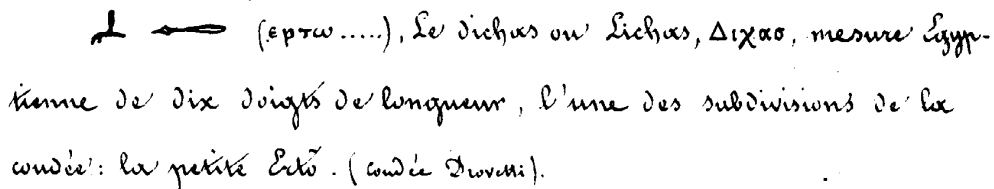 (ερτω.....), Le Dichas ou Lichas, Διχασ, mesure Égyp-
tienne de dix doigts de longueur, l'une des subdivisions de la
coudée: la petite Ertô. (coudée Drovetti).